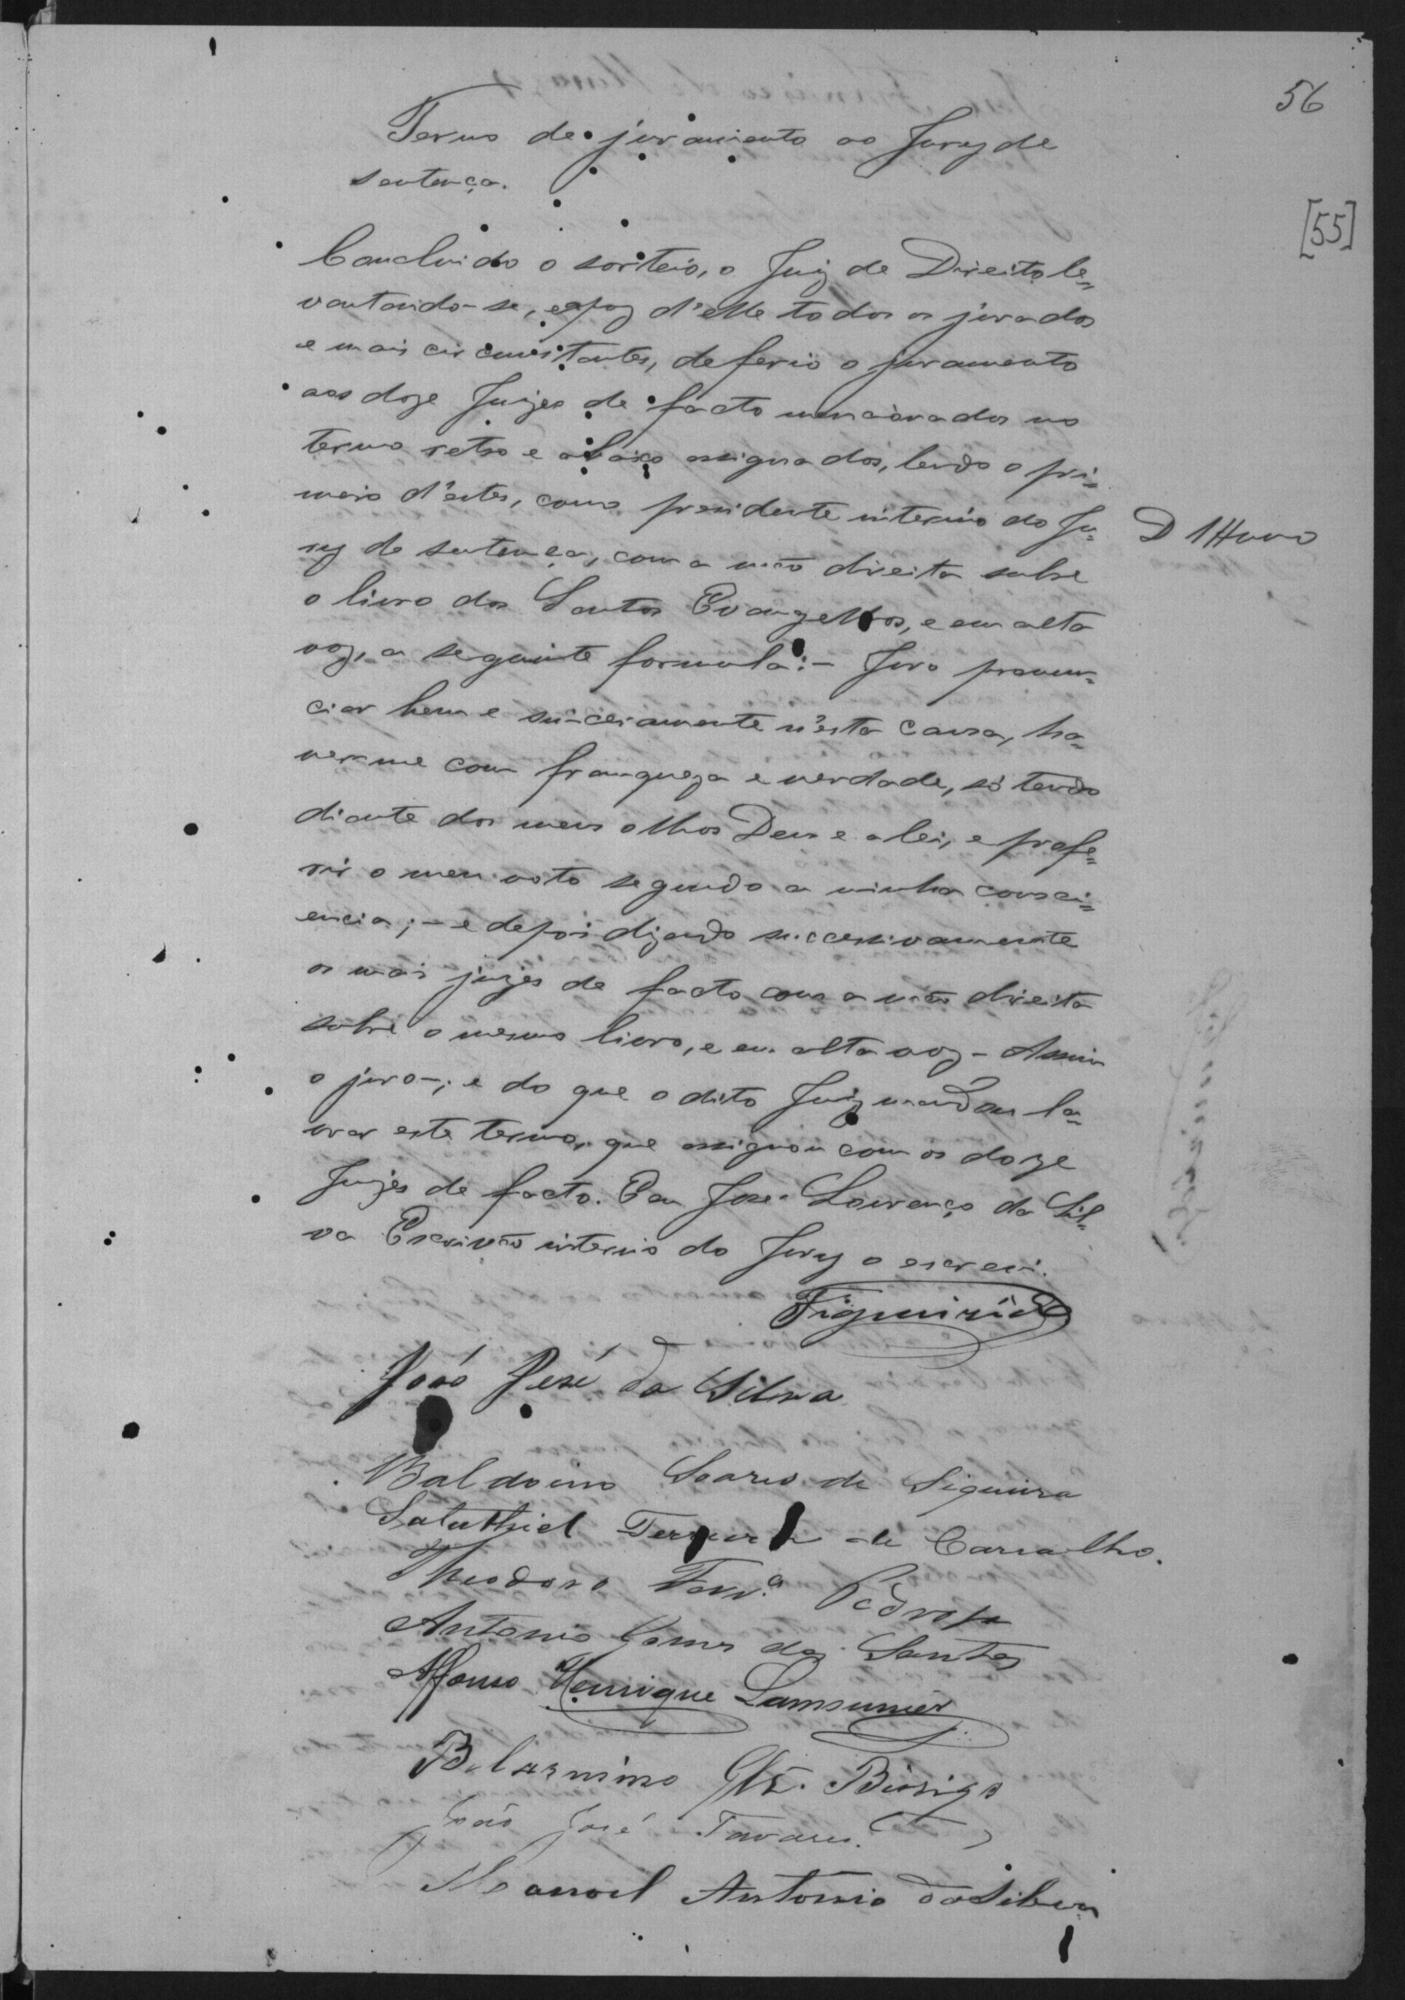 56
[55]
Termo de juramento ao Jury de
sentença.
Concluido o sorteio, o Juiz de Direito le=
vantando-se, e apoz d'elle todos os jurados
e mais circunstantes, deferio o juramento
aos doze Juizes de facto mencionados no
termo retro e abaixo assignados, lendo o pri=
meiro d'estes, como presidente interino do Ju=
ry de sentença, com a mão direita sobre
o livro dos Santos Evangelhos, e em alta
voz, a seguinte formula:- Juro pronun=
ciar bem e sinceramente n'esta causa, ha=
ver-me com franqueza e verdade, só tendo
diante dos meus olhos Deus e a lei, e profe=
rir o meu voto segundo a minha consci=
encia;- e depois dizendo successivamente
os mais juizes de facto com a mão direita
sobre o mesmo livro, e em alta voz - Assim
o juro-; e do que o dito Juiz mandou la=
vrar este termo, que assignou com os doze
Juizes de facto. Eu José Lourenço da Sil=
va Escrivão interino do Jury o escrevi.
Figueirêdo
João José da Silva
Baldoino Soares de Siqueira
Salathiel de Carvalho.
Theodoro Ferr.ª Pedrosa
Antonio Gomes dos Santos
Affonso Henrique Lamounier
Belarmino
João José Tavares.
Manoel Antonio da Silva